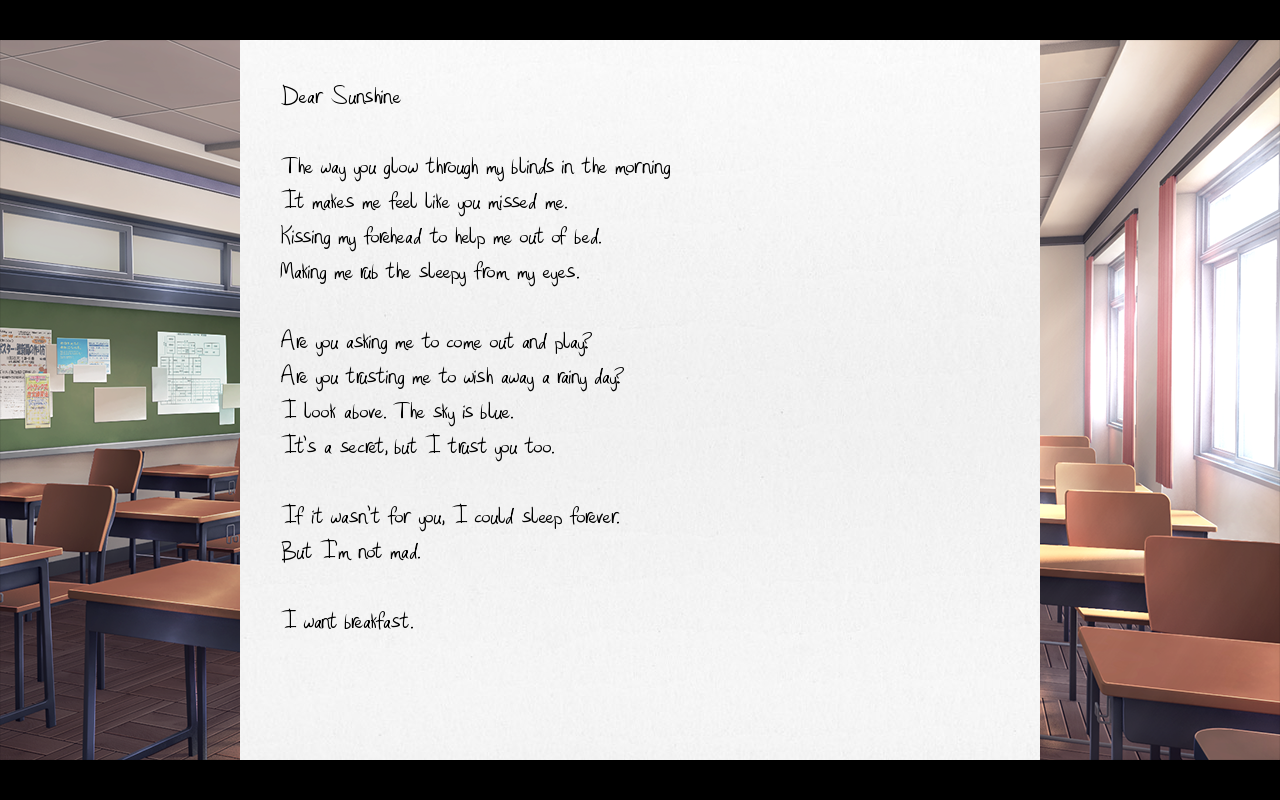 Dear Sunshine
The way you glow through my blinds in the morning
It makes me feel like you missed me.
Kissing my forehead to help me out of bed.
Making me rub the sleepy from my eyes.
Are you asking me to come out and play?
Are you trusting me to wish away a rainy day?
I look above. The sky is blue.
It's a secret, but I trust you too.
If it wasn't for you, I could sleep forever.
But I'm not mad.
I want breakfast.